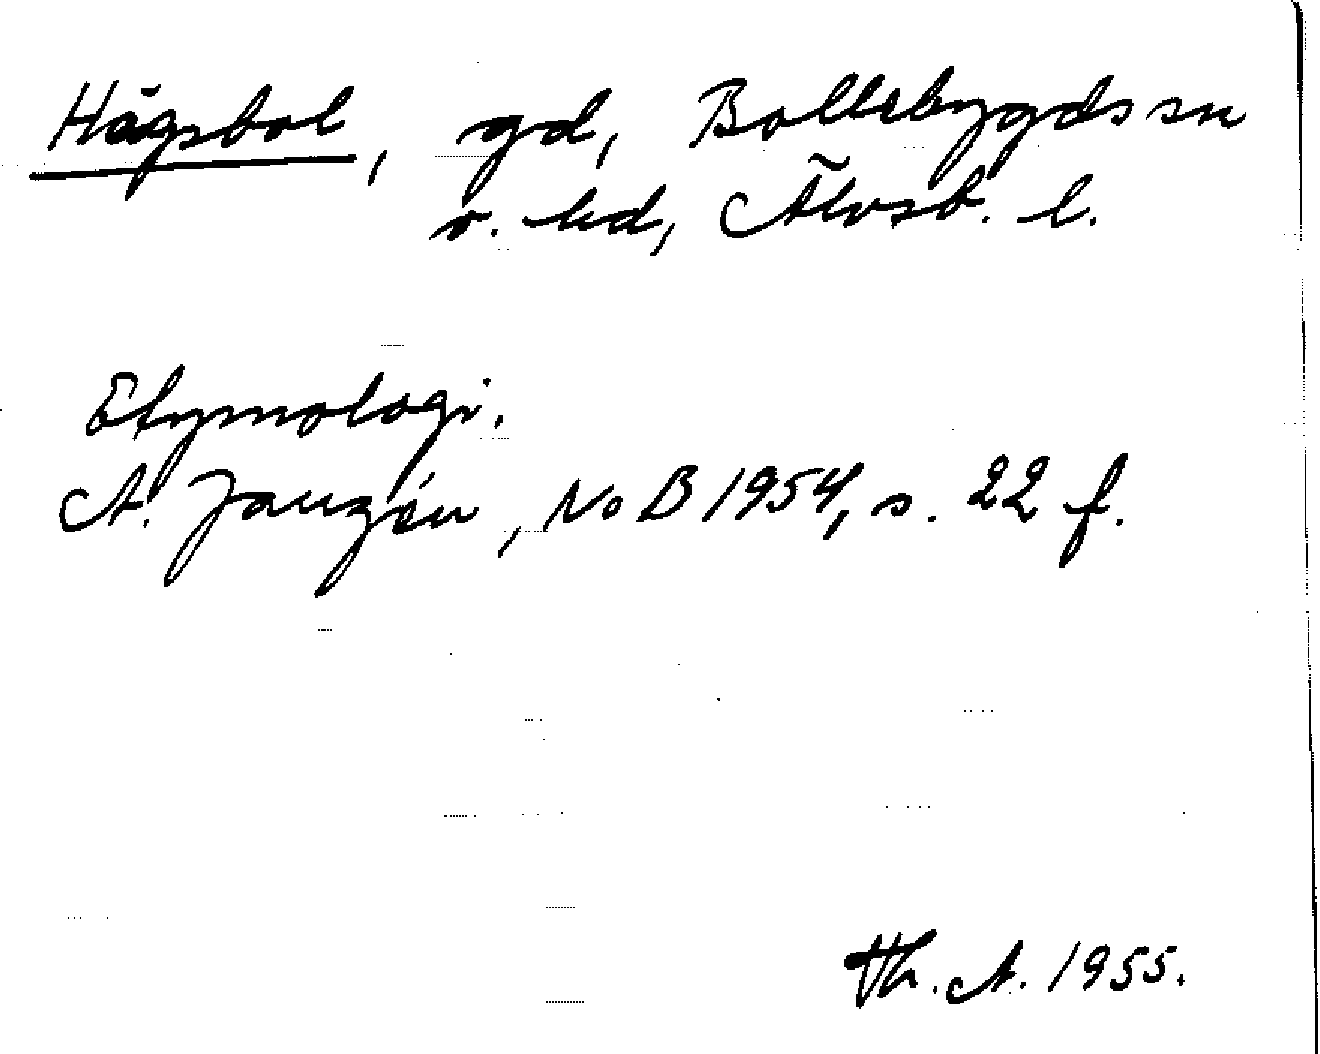 Hägsbol, gd, Bollebygds sn
o. hd, Älvsb. l.
Etymologi.
A. Janzén, NoB 1954, s. 22 f.
Th. A. 1955.